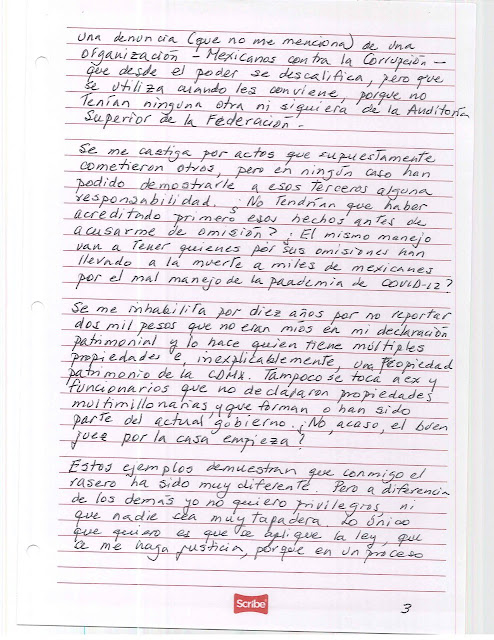 una denuncia (que no me menciona) de una
organización - Mexicanos contra la Corrupción -
que desde el poder se descalifica, pero que
se utiliza cuando les conviene, porque no
tenían ninguna otra ni siquiera de la Auditoría
Superior de la Federación.
Se me castiga por actos que supuestamente
cometieron otros, pero en ningún caso han
podido demostrarle a esos terceros alguna
responsabilidad. ¿No tendrían que haber
acreditado primero esos hechos antes de
acusarme de omisión? ¿El mismo manejo
van a tener quienes por sus omisiones han
llevado a la muerte a miles de mexicanos
por el mal manejo de la paademia de COVID-12?
Se me inhabilita por diez años por no reportar
dos mil pesos que no eran míos en mi declaración
patrimonial y lo hace quien tiene múltiples
propiedades e, inexplicablemente, una propiedad
patrimonio de la CDMX. Tampoco se toca a ex y
funcionarios que no declararon propiedades
multimillonarias y que forman o han sido
parte del actual gobierno. ¿No, acaso, el buen
juez por la casa empieza?
Estos ejemplos demuestran que conmigo el
rasero ha sido muy diferente. Pero a diferencia
de los demás yo no quiero privilegios, ni
que nadie sea muy tapadera. Lo único
que quiero es que se aplique la ley, que
se me haga justicia, porque en un proceso
Scribe
3